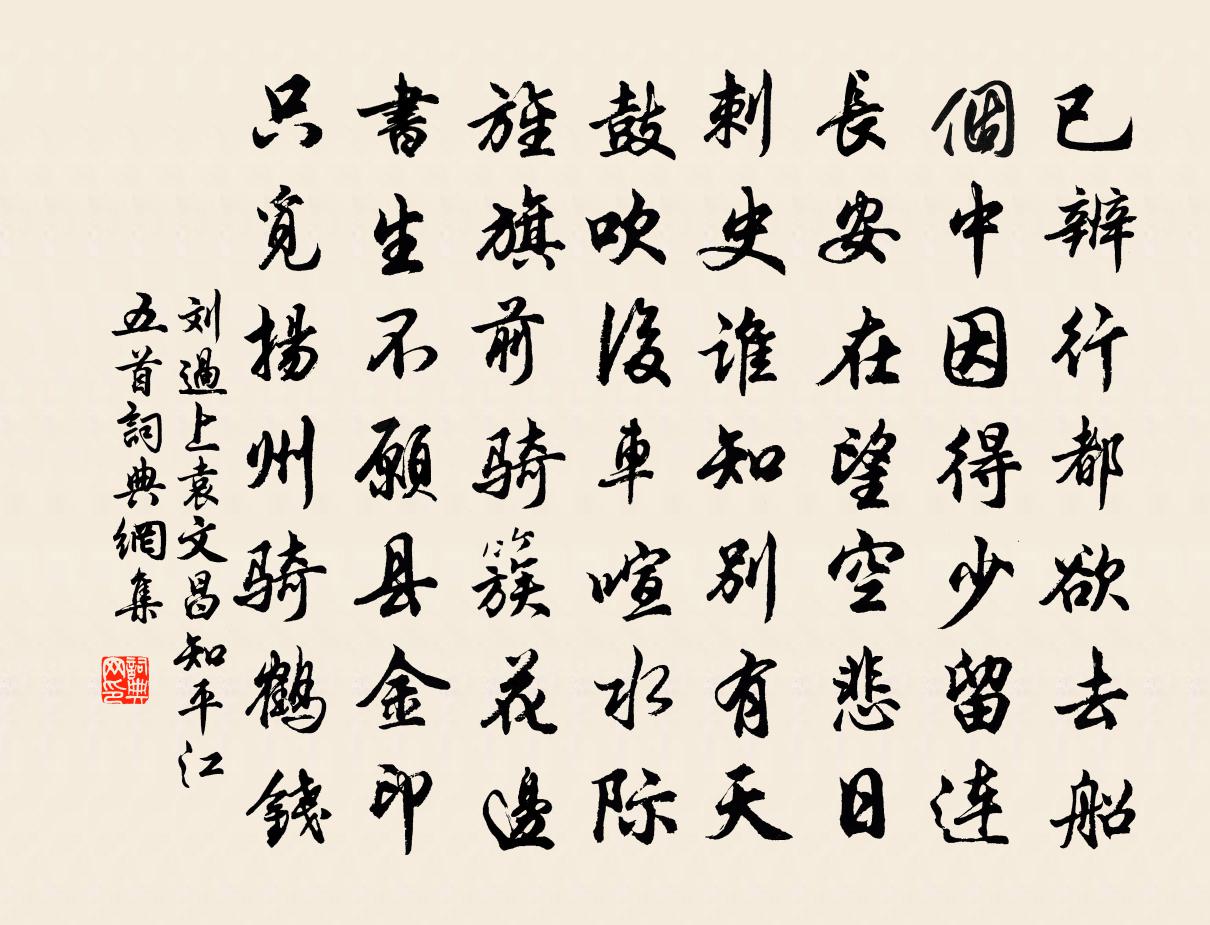 已辦行都欲去船
個中因得少留連
長安在望空悲日
刺史誰知別有天
鼓吹後車喧水际
旌旗前騎簇花邊
書生不願县金印
只覓揚州騎鶴錢
刘過上袁文昌知平江
五首詞典網集
詞典网印